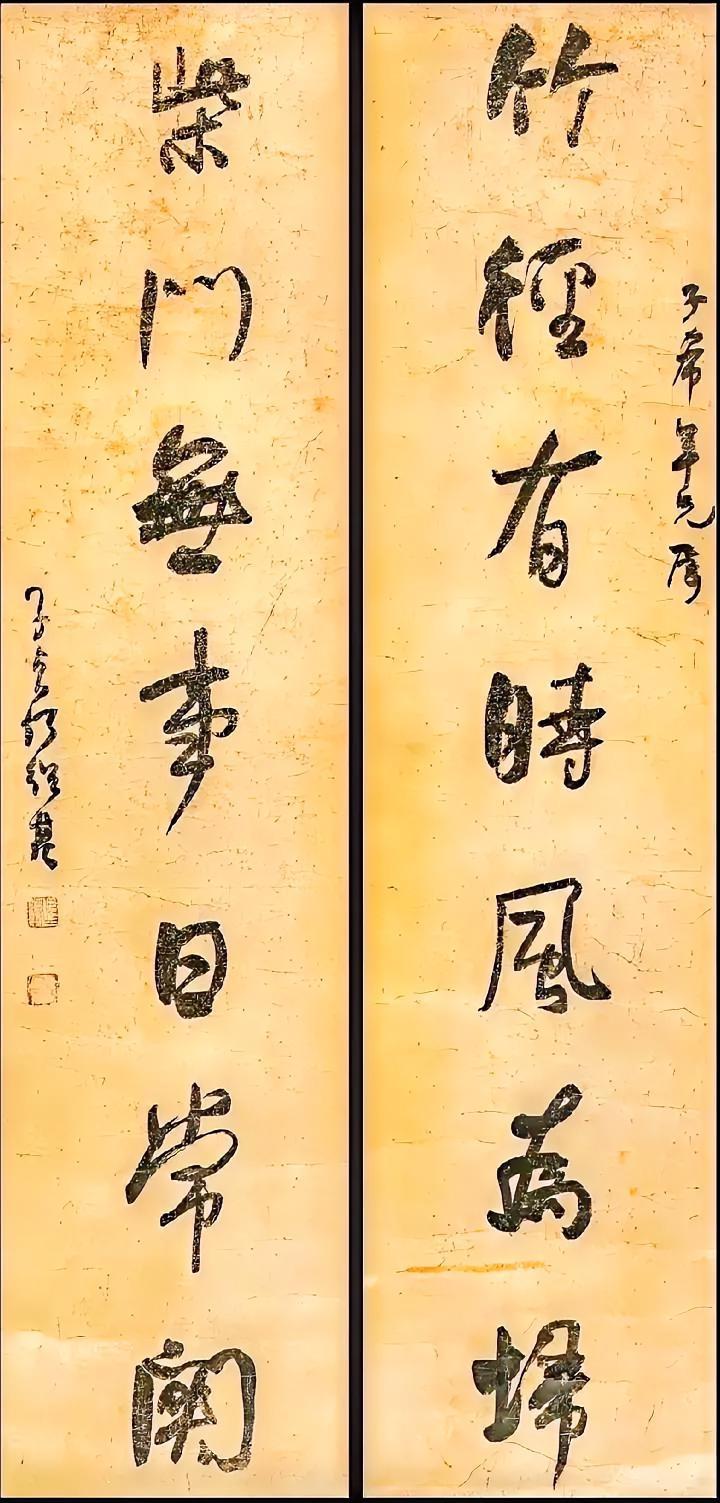 子希年兄屬
竹徑有時風為埽
柴門無事日常關
子貞何紹基